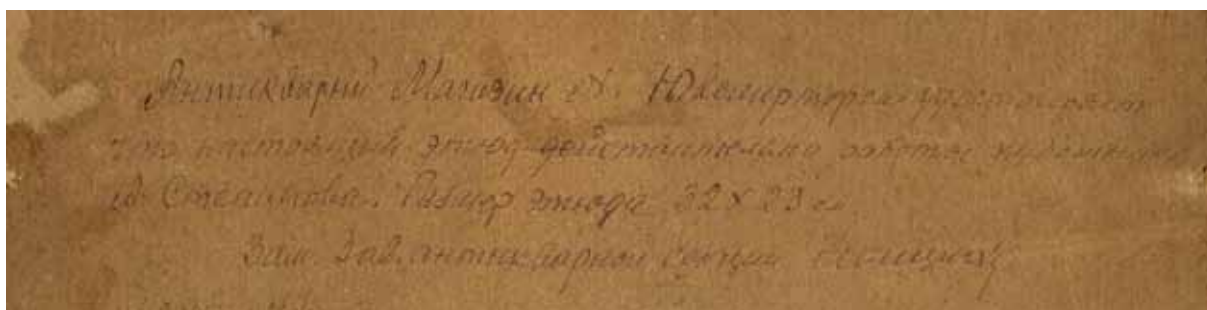 Антикварный Магазин Ювелирторга удостоверяет
что настоящий этюд действительно работы художника
Степанова. Размер этюда 32 х 23 см.
Зам. Зав. антикварной секции